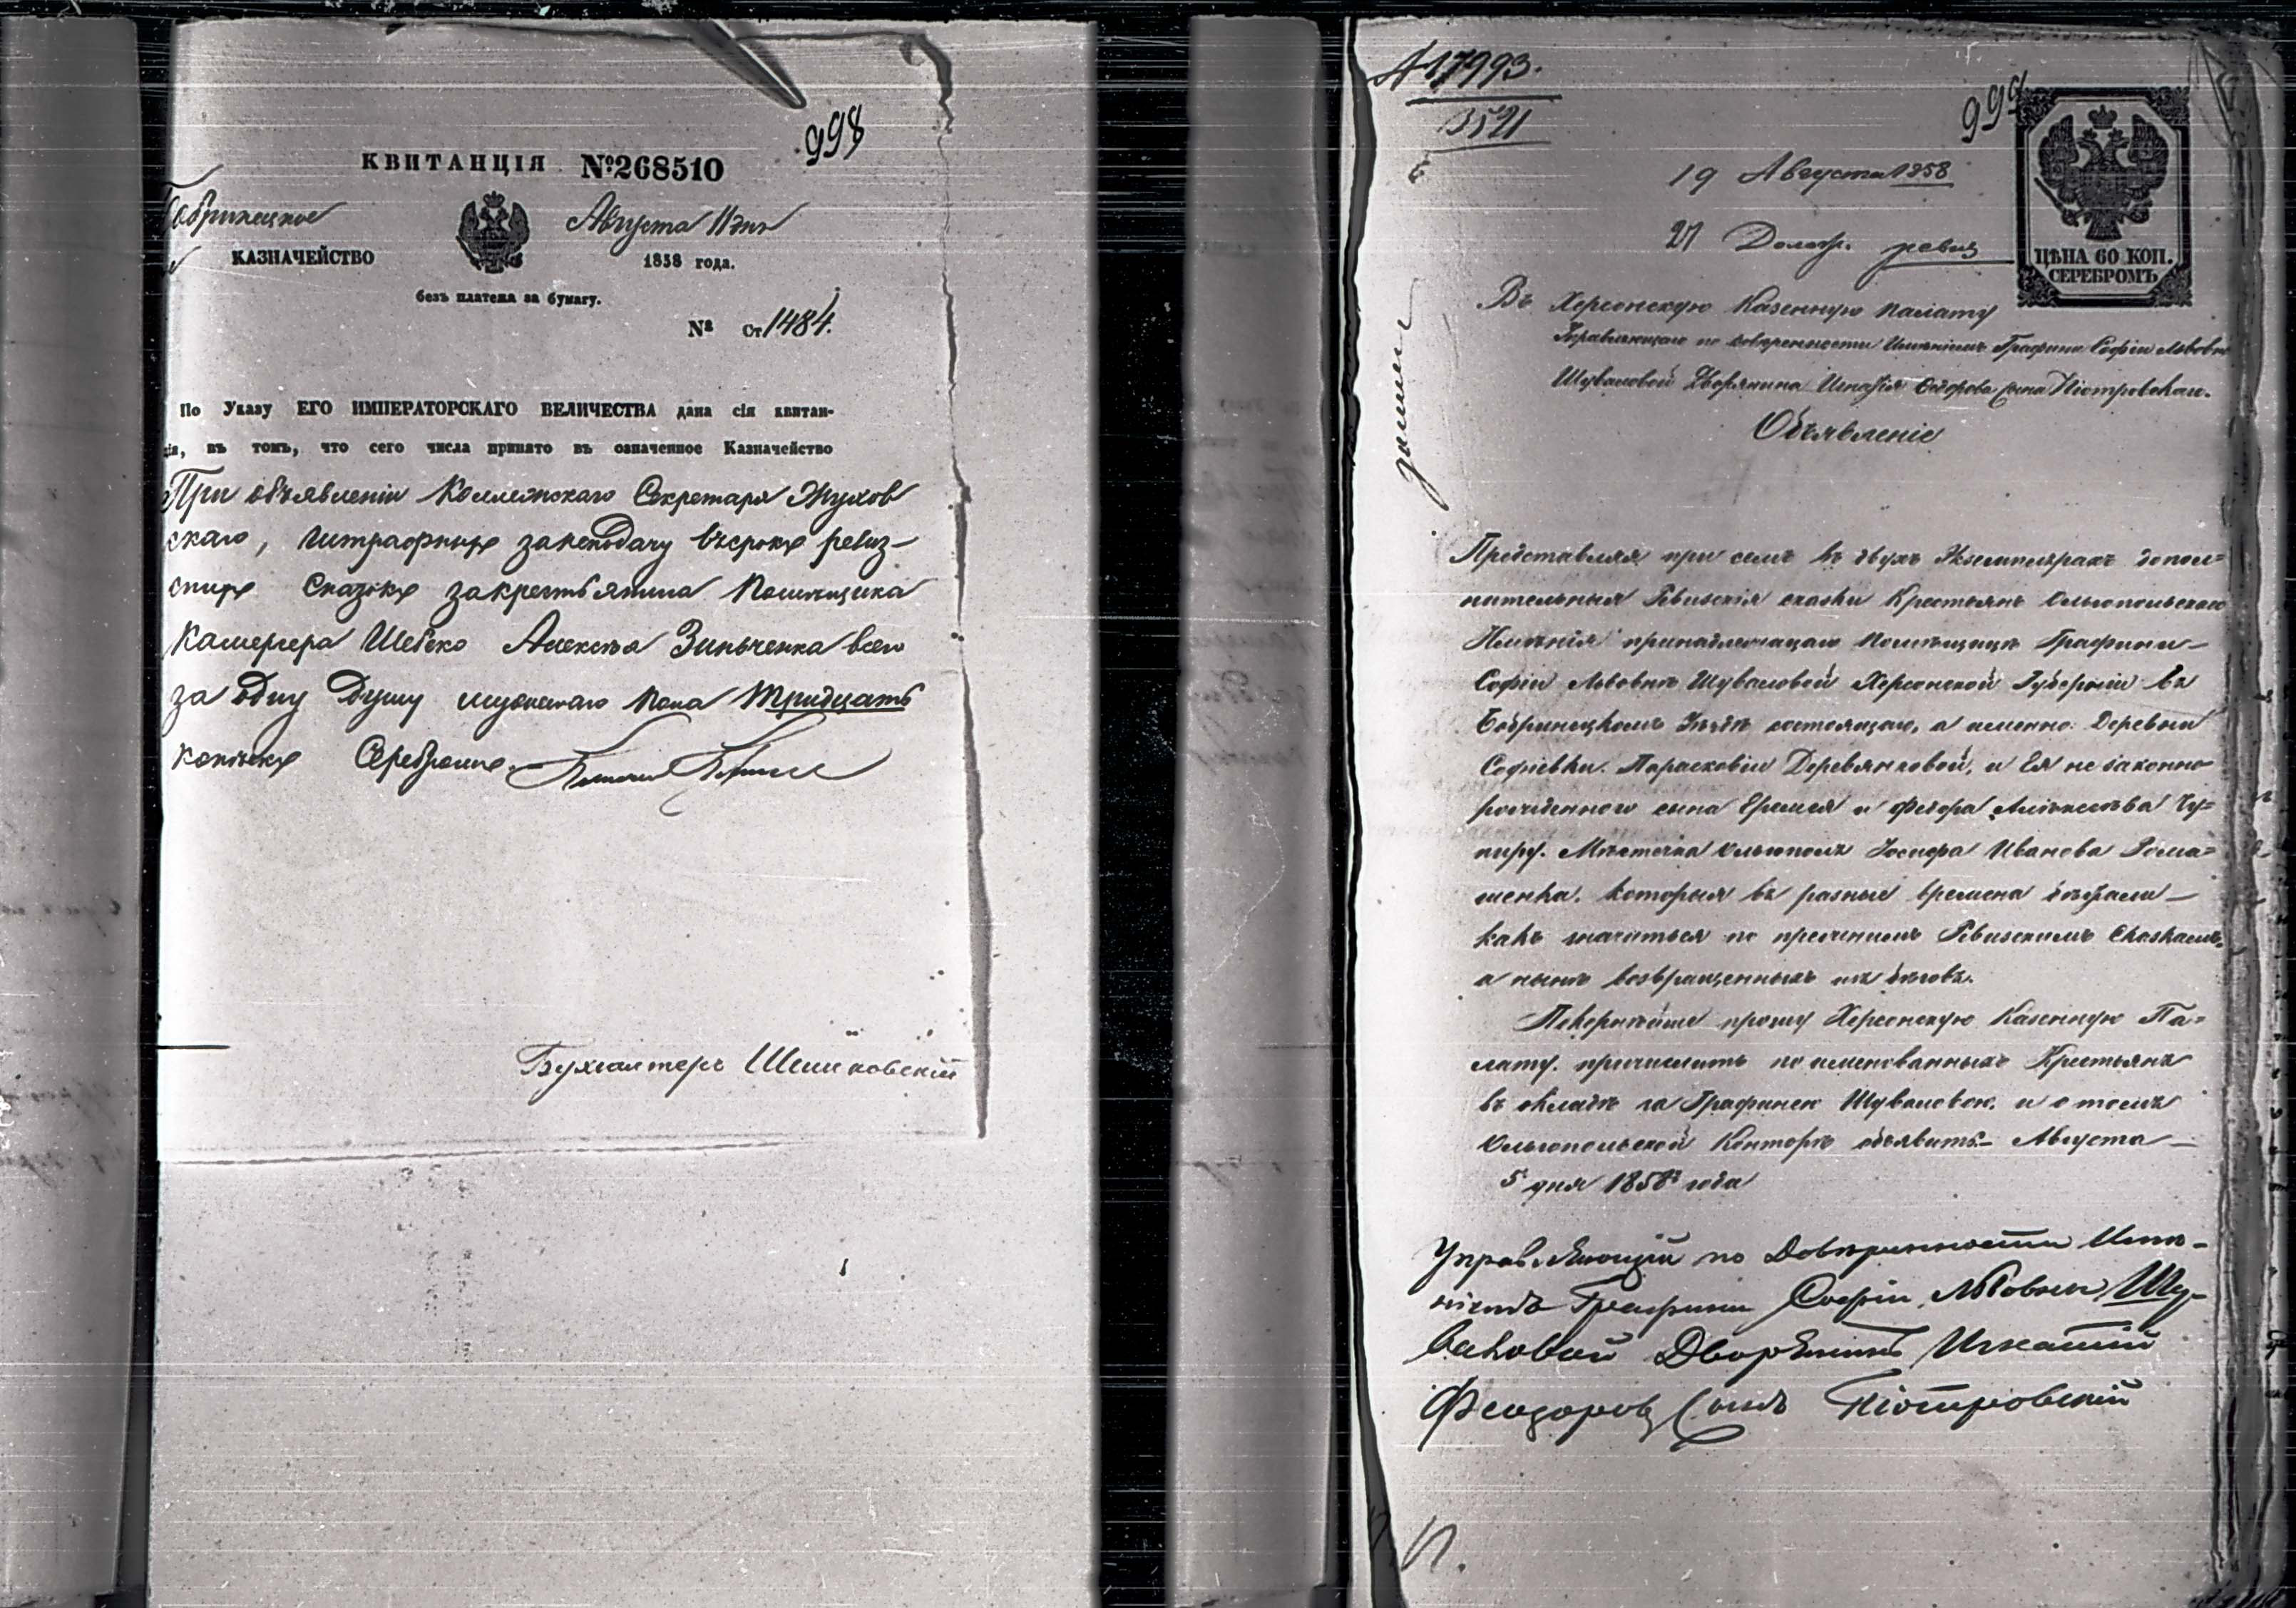 998
КВИТАНЦІЯ №268510
Бобринецкое
Августа 11 дня
КАЗНАЧЕЙСТВО
1858 года.
безъ платежа за бумагу.
№ Ст. 1484.
По Указу ЕГО ИМПЕРАТОРСКАГО ВЕЛИЧЕСТВА дана сія квитан-
ція, въ томъ, что сего числа принято въ означенное Казначейство
При объявленіи Коллежскаго Секретаря Жухов
скаго, штрафныхъ за неподачу въсрокъ ревиз-
скихъ Сказокъ закрестьянина Помѣщика
Камергера Шебеко Алексѣя Зинченка всего
за одну Душу мужескаго пола Тридцать
копѣекъ Серебромъ.
Бухгалтеръ
17993.
3521
999
19 Августа 1858
21 Допол. ревиз
ЦѢНА 60 КОП.
СЕРЕБРОМЪ
Въ Херсонскую Казенную Палату
Управляющаго по довѣренности Имѣніемъ Графини Софіи Львовны
Шуваловой Дворянина Игнатія Ѳедорова сына Піотровскаго.
Объявленіе
Представляя при семъ въ двухъ Экземплярахъ допол=
нительныя Ревизскія сказки Крестьянъ Ольгопольскаго
Имѣнія принадлежащаго помѣщицѣ Графини
Софіи Львовнѣ Шуваловой Херсонской Губерніи въ
Бобринецкомъ Уѣздѣ состоящаго, а именно: Деревни
Софіевки. Парасковіи Деревянковой, и Ея не законно
рожденного сына Еремея и Федора Алексѣева Чу=
пиру. Мѣстечка Ольгополя Іосифа Иванова Рома=
шенка. которыя въ разныя времена бѣжали
какъ значиться по прежнимъ Ревизскимъ Сказкамъ,
а нынѣ возвращенныхъ изъ бѣговъ.
Покорнѣйше прошу Херсонскую Казенную Па=
лату. причислить по именованныхъ Крестьянъ
въ окладъ за Графинею Шуваловою. и о томъ
Ольгопольской Конторѣ объявить. Августа
5 дня 1858 года
Управляющій по Довѣренности Имѣ-
ніемъ Графини Софіи Львовны Шу-
валовой Дворянинъ Игнатій
Феодоровъ Сынъ Піотровскій